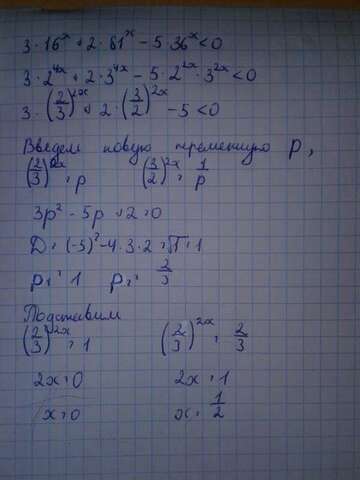 3 · 16^x + 2 · 81^x − 5 · 36^x < 0
3 · 2^{4x} + 2 · 3^{4x} − 5 · 2^{2x} · 3^{2x} < 0
3 · (2/3)^{2x} + 2 · (3/2)^{2x} − 5 < 0
Введем новую переменную p,
(2/3)^{2x} = p (3/2)^{2x} = 1/p
3p² − 5p + 2 = 0
D = (−5)² − 4 · 3 · 2 = √1 = 1
p₁ = 1 p₂ = 2/3
Подставим
(2/3)^{2x} = 1 (2/3)^{2x} = 2/3
2x = 0 2x = 1
x = 0 x = 1/2